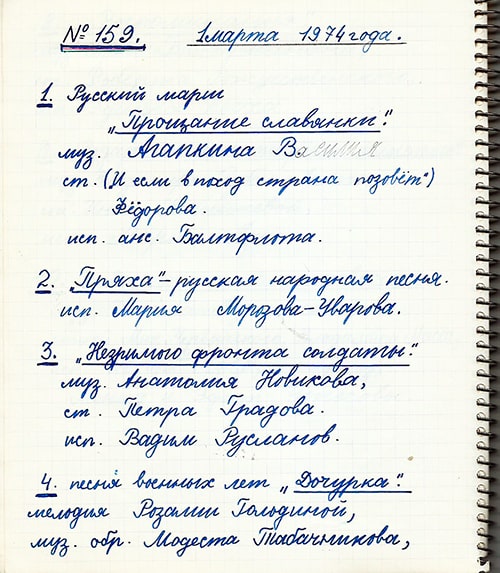 № 159. 1 марта 1974 года.
1. Русский марш
„Прощание славянки".
муз. Агапкина Василия
ст. („И если в поход страна позовёт")
Фёдорова.
исп. анс. Балтфлота.
2. „Пряха" – русская народная песня.
исп. Мария Морозова-Уварова.
3. „Незримого фронта солдаты".
муз. Анатолия Новикова,
ст. Петра Градова.
исп. Вадим Русланов.
4. песня военных лет „Дочурка".
мелодия Розалии Голодиной,
муз. обр. Модеста Табачникова,